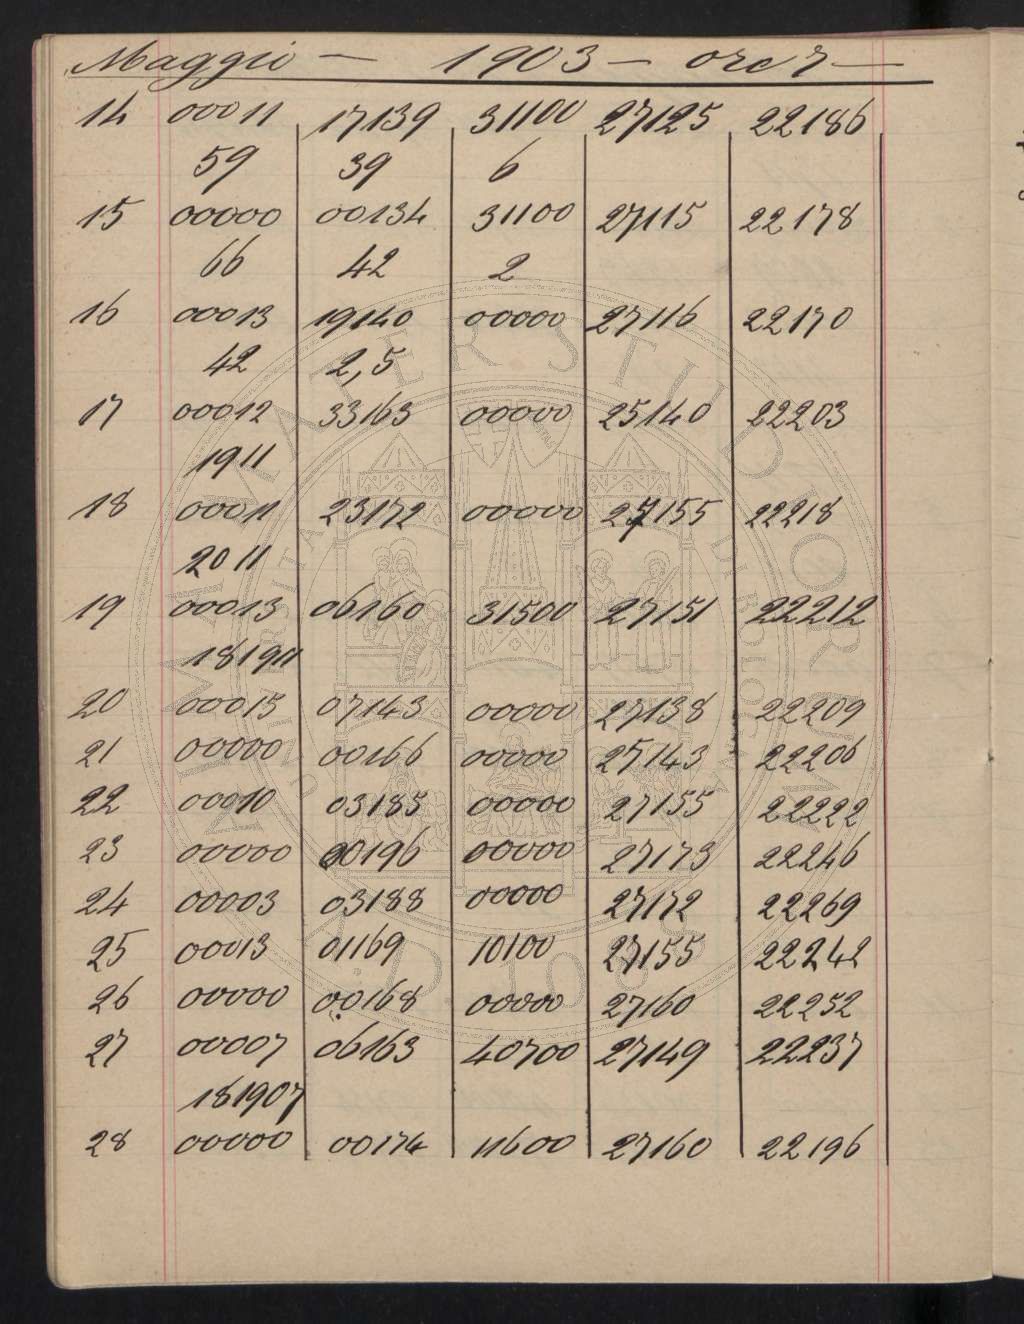 Maggio — 1903 — ore 7 —
14 00011 17139 31100 27125 22186
59 39 6
15 00000 00134 31100 27115 22178
66 42 2
16 00013 19140 00000 27116 22170
42 2,5
17 00012 33163 00000 25140 22203
1911
18 00011 23172 00000 27155 22218
2011
19 00013 06160 31500 27151 22212
181911
20 00015 07143 00000 27138 22209
21 00000 00166 00000 25143 22206
22 00010 03185 00000 27155 22222
23 00000 00196 00000 27173 22246
24 00003 03188 00000 27172 22269
25 00013 01169 10100 27155 22242
26 00000 00168 00000 27160 22252
27 00007 06163 40700 27149 22237
181907
28 00000 00174 11600 27160 22196